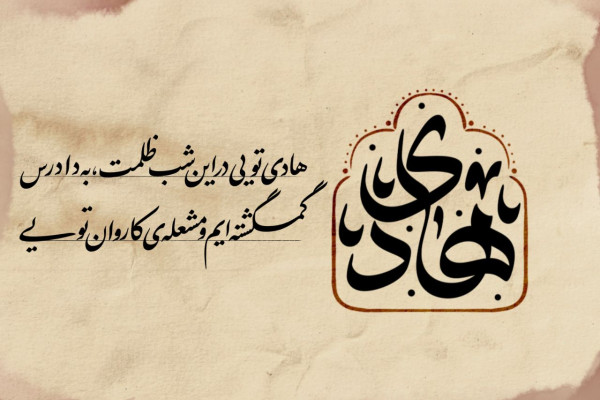 هادی
هادی تویی در این شب ظلمت، به داد رس
گمگشته ایم و مشعله‌ی کاروان تویی